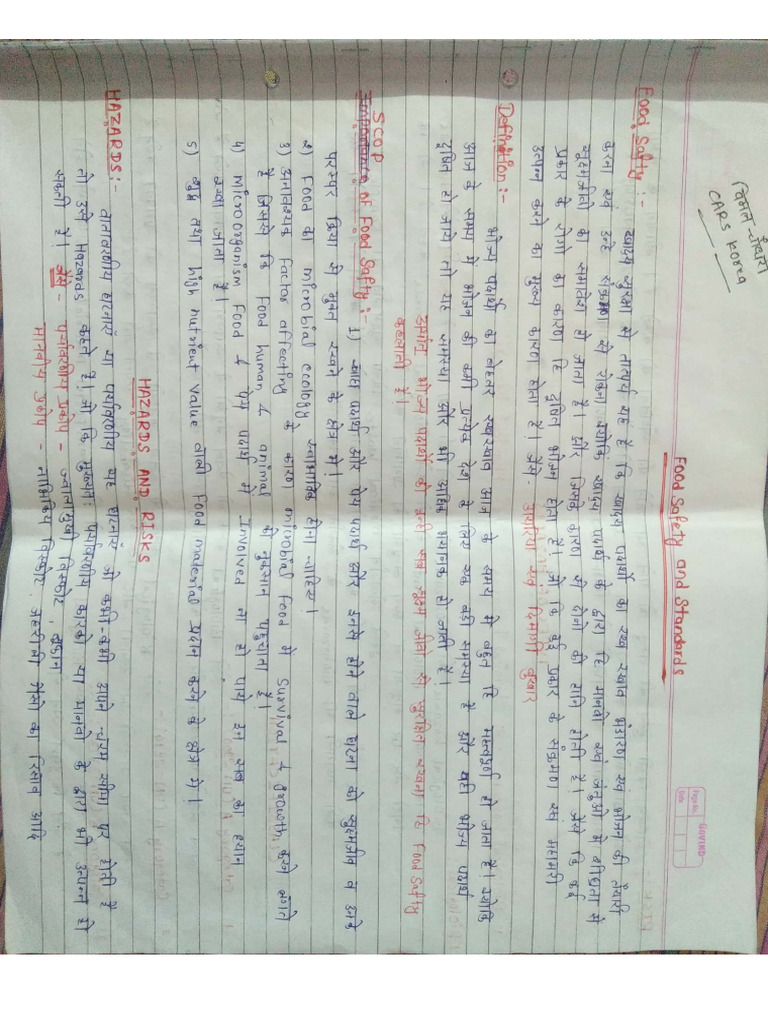 विमल चौधरी
CARS Korea
GOVIND
Page No.
Date
Food Safety and Standards
Food Safty :-
खाद्य सुरक्षा से तात्पर्य यह है कि खाद्य पदार्थों का रख रखाव भंडारण एवं भोजन की तैयारी
करना एवं उन्हे संक्रमण से रोकना क्योकि खाद्य पदार्थ के द्वारा हि मानवो एवं जंतुओ मे शीघ्रता से
सूक्ष्मजीवो का समावेश हो जाता है। और जिसके कारण से दोनो को हानि होती है। जैसे कि कई
प्रकार के रोगो का कारण हि दूषित भोजन होता है। जो कि कई प्रकार के संक्रमण एवं महामारी
उत्पन्न करने का मुख्य कारण होता है। जैसे- डायरिया एवं दिमागी बुखार
Definition :-
भोज्य पदार्थ का बेहतर रखरखाव आज के समय मे बहुत हि महत्वपूर्ण हो जाता है। क्योकि
आज के समय मे भोजन की कमी प्रत्येक देश के लिए एक बड़ी समस्या है और यही भोज्य पदार्थ
दूषित हो जाये तो यह समस्या और भी अधिक भयानक हो जाती है।
भोज्य पदार्थो को इसी सब सूक्ष्म जीवो से सुरक्षित रखना हि Food Safty
कहलाती है।
SCOP
Importance of Food Safty :-
1) खाद्य पदार्थ और पेय पदार्थ और इनसे होने वाले घटना को सूक्ष्मजीव व उनके
परस्पर क्रिया से मुक्त रखने के क्षेत्र मे।
2) Food का microbial ecology स्वाभाविक होना चाहिए।
3) अनावश्यक factor affecting के कारण microbial food मे Survival & growth करने लगते
है जिससे कि Food human & animal को नुकसान पहुचाता है।
4) microorganism Food & पेय पदार्थ मे Involved ना हो पाये इन सब का ध्यान
रखा जाता है।
5) शुद्ध तथा high nutrient value वाली Food material प्रदान करने के क्षेत्र मे।
HAZARDS AND RISKS
HAZARDS :-
वातावरणीय घटनाएं या पर्यावरणीय वह घटनाएं जो कभी-कभी अपने चरम सीमा पर होती है
तो उसे Hazards कहते है। जो कि मुख्यतः पर्यावरणीय कारको या मानवो के द्वारा भी उत्पन्न हो
सकती है। जैसे - पर्यावरणीय प्रकोप - ज्वालामुखी विस्फोट, तूफान
मानवीय प्रकोप - नाभिकिय विस्फोट, जहरीली गैसो का रिसाव आदि